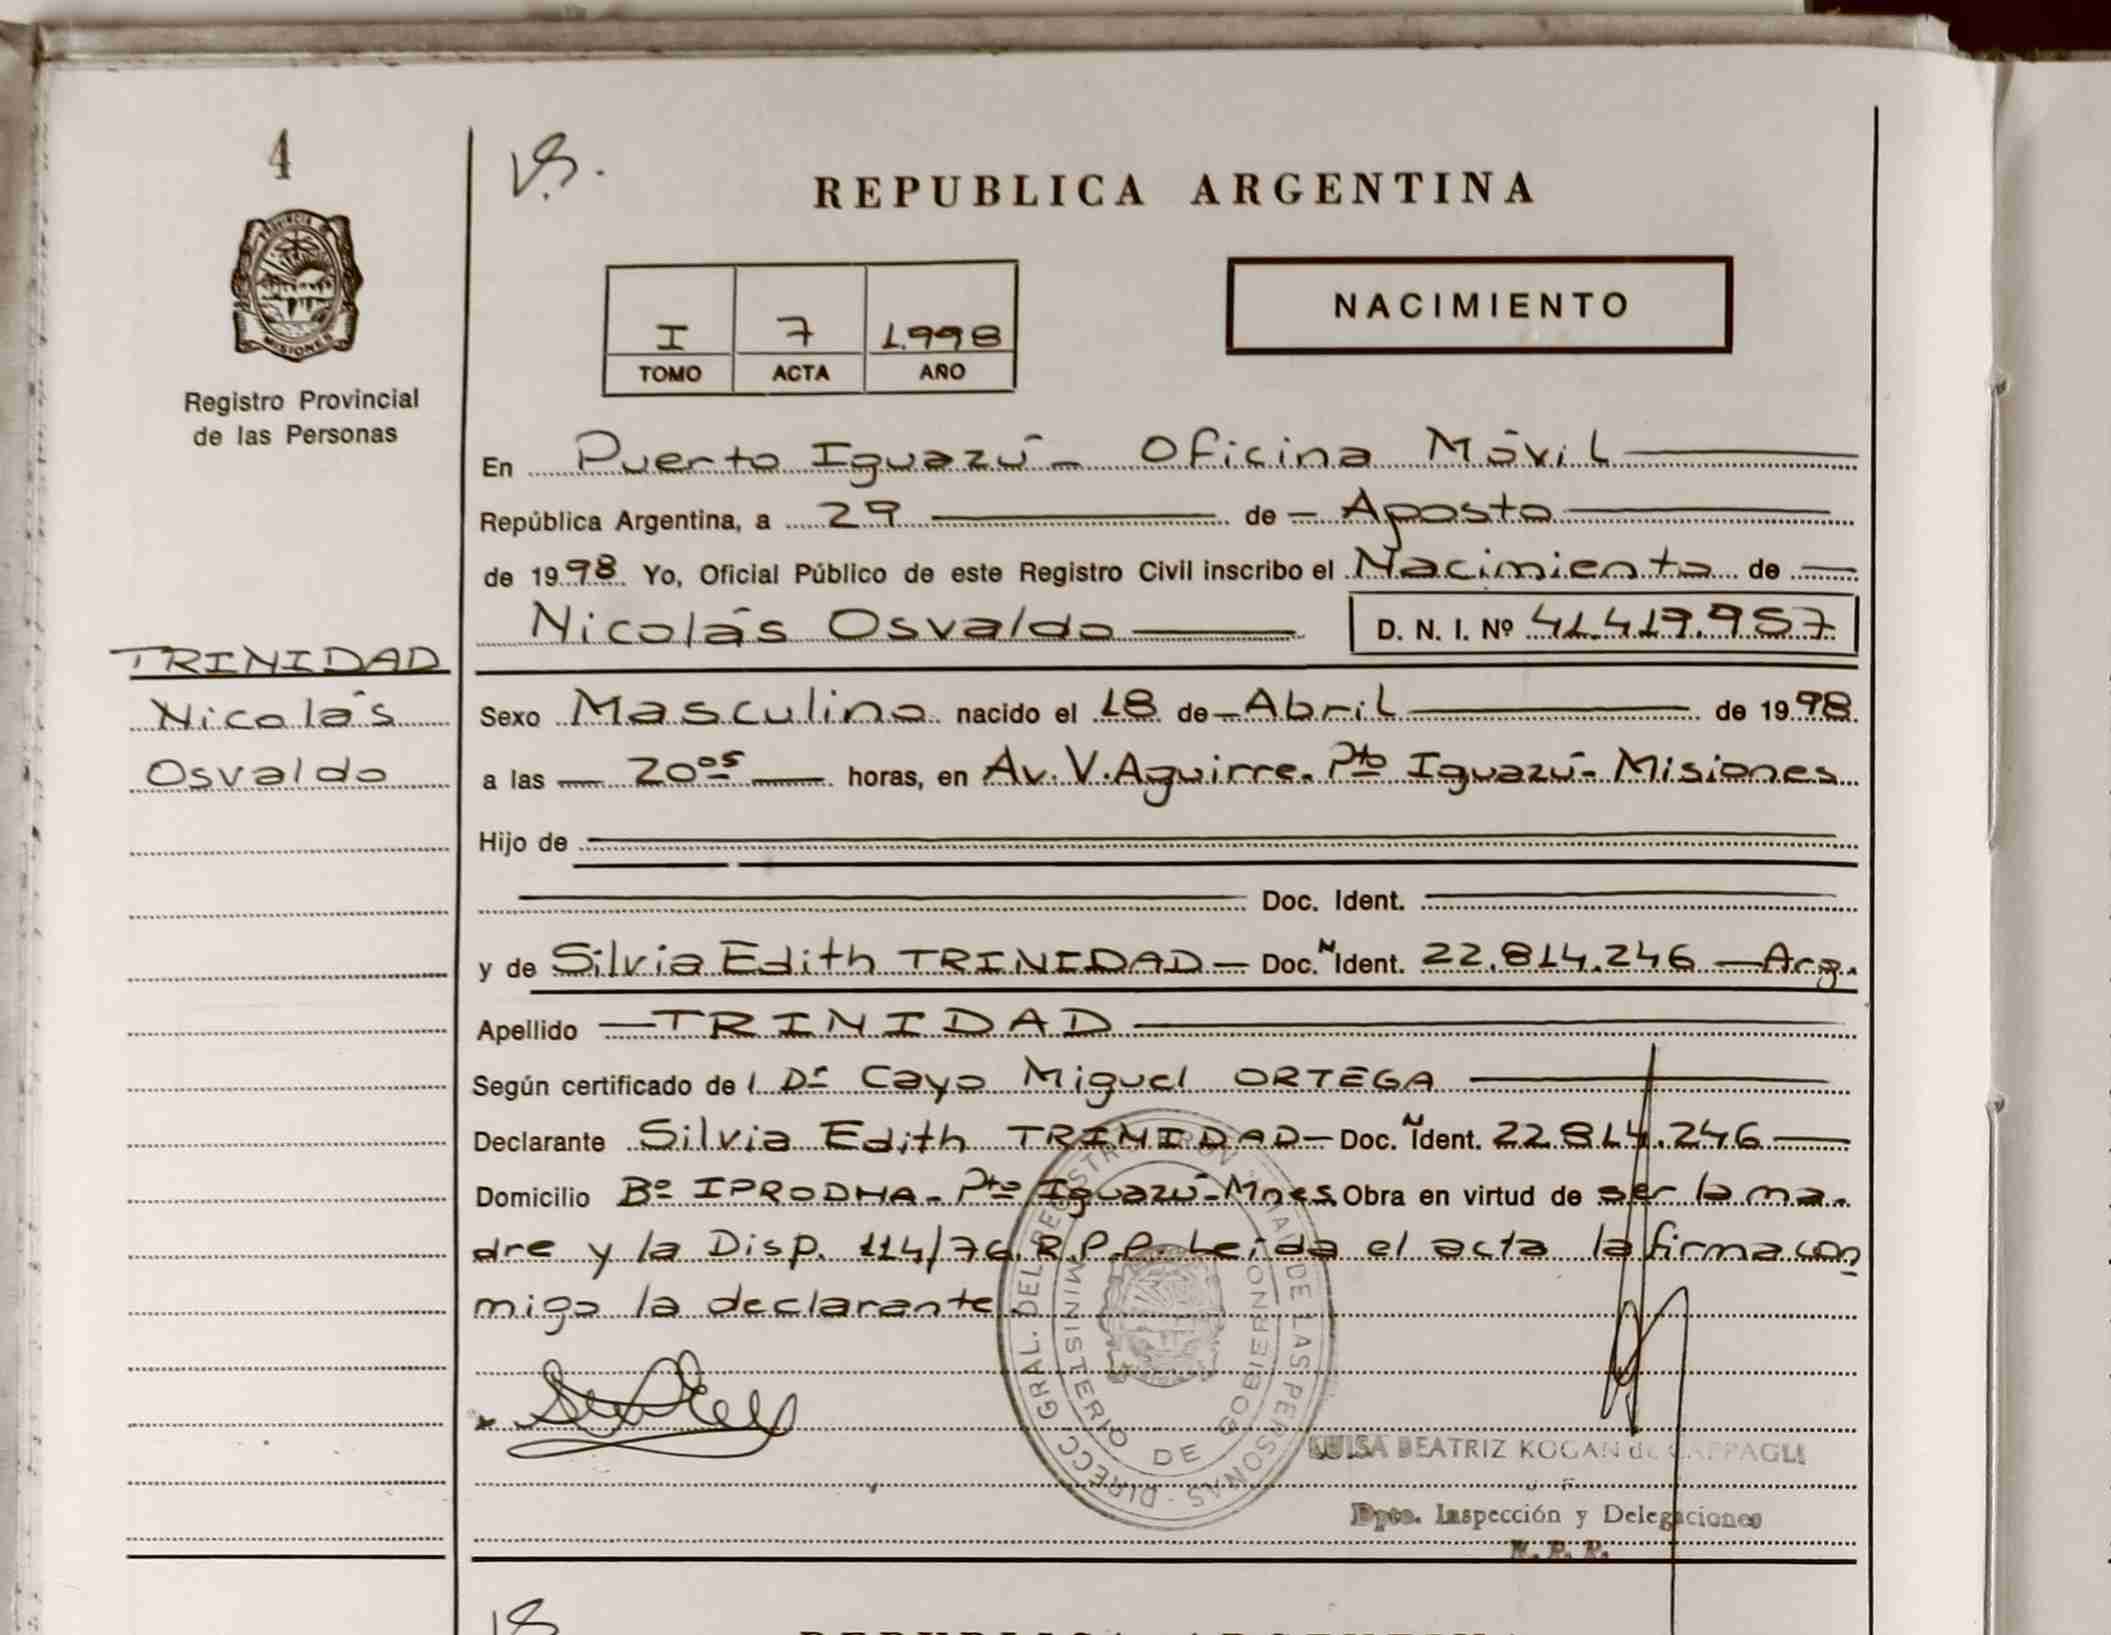 4
V.S.
REPUBLICA ARGENTINA
PROVINCIA
MISIONES
Registro Provincial
de las Personas
I 7 1.998
TOMO ACTA AÑO
NACIMIENTO
En Puerto Iguazú - Oficina Móvil
República Argentina, a 29 de Agosto
de 1998 Yo, Oficial Público de este Registro Civil inscribo el Nacimiento de
Nicolás Osvaldo D. N. I. Nº 41.419.957
TRINIDAD
Nicolás
Osvaldo
Sexo Masculino nacido el 18 de Abril de 1998
a las 20 05 horas, en Av. V. Aguirre. Pto Iguazú - Misiones
Hijo de
Doc. Ident.
y de Silvia Edith TRINIDAD - Doc. N Ident. 22.814.246 - Arg.
Apellido TRINIDAD
Según certificado de l Dr Cayo Miguel ORTEGA
Declarante Silvia Edith TRINIDAD - Doc. N Ident. 22.814.246
Domicilio Bº IPRODHA - Pto Iguazú - Mnes Obra en virtud de ser la ma-
dre y la Disp. 114/76 R.P.P. Leída el acta la firma con
migo la declarante.
DIRECC. GRAL. DEL REGISTRO DE LAS PERSONAS
MINISTERIO DE GOBIERNO
LUISA BEATRIZ KOGAN de CAPPAGLI
Dpto. Inspección y Delegaciones
R. P. P.
VS
REPUBLICA ARGENTINA